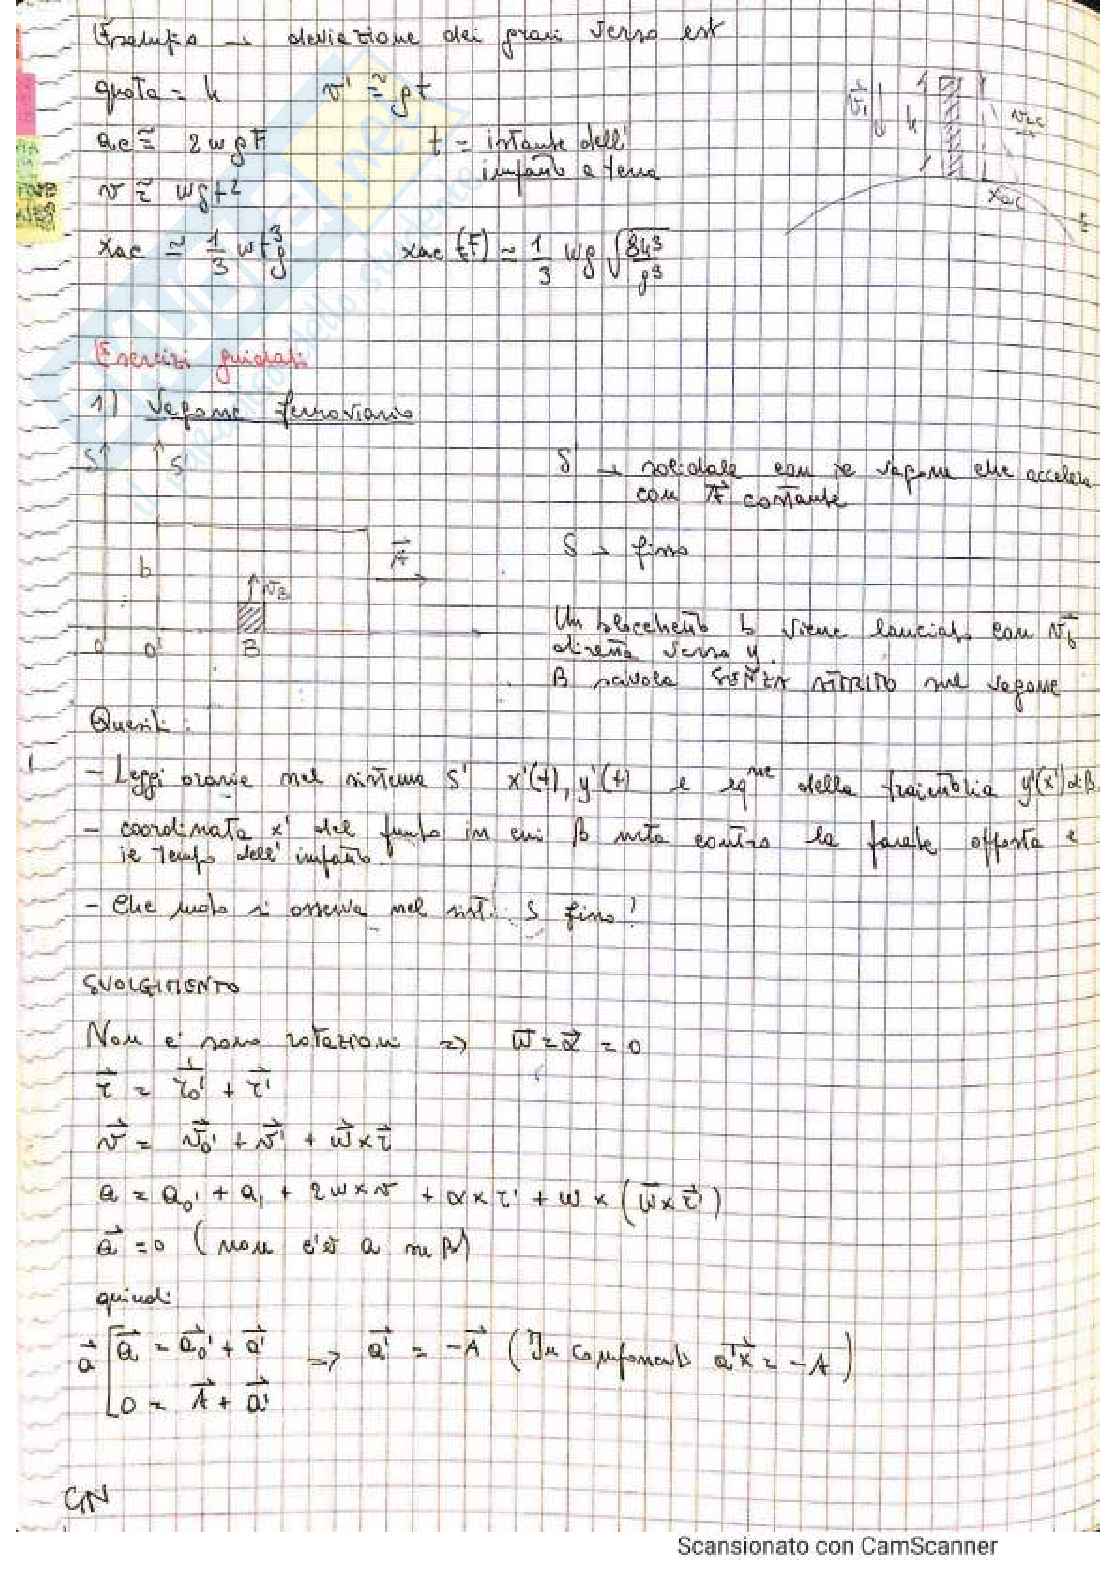 Esempio → deviazione dei gravi verso est
quota = h v' ≅ gt
ac ≅ 2wgt t = istante dell'
impatto a terra
v ≅ wgt²
xac ≅ 1/3 wt³g xac (t) ≃ 1/3 wg √(8h³/g³)
Esercizi guidati
1) Vagone ferroviario
S S'
S' → solidale con il vagone che accelera
con A costante
S → fisso
b
A
vB
O O' B
Un blocchetto b viene lanciato con vb
diretta verso y.
B scivola SENZA ATTRITO sul vagone
Quesiti:
- Leggi orarie nel sistema S' x'(t), y'(t) e eqne della traiettoria y'(x') di B.
- coordinata x' del punto in cui B urta contro la parete opposta e
il tempo dell'impatto.
- Che moto si osserva nel sist. S fisso?
SVOLGIMENTO
Non ci sono rotazioni => w = α = 0
r = r0' + r'
v = v0' + v' + w × r
a = a0' + a, + 2w×v + α × r' + w × (w×r')
a = 0 (non c'è a su B)
quindi
a [ a = a0' + a' => a' = -A (In componenti a'x = -A)
0 = A + a'
GN
Scansionato con CamScanner